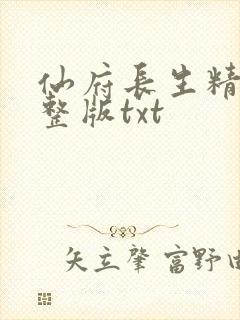 仙府長生精
整版txt
矢立肇 富野由